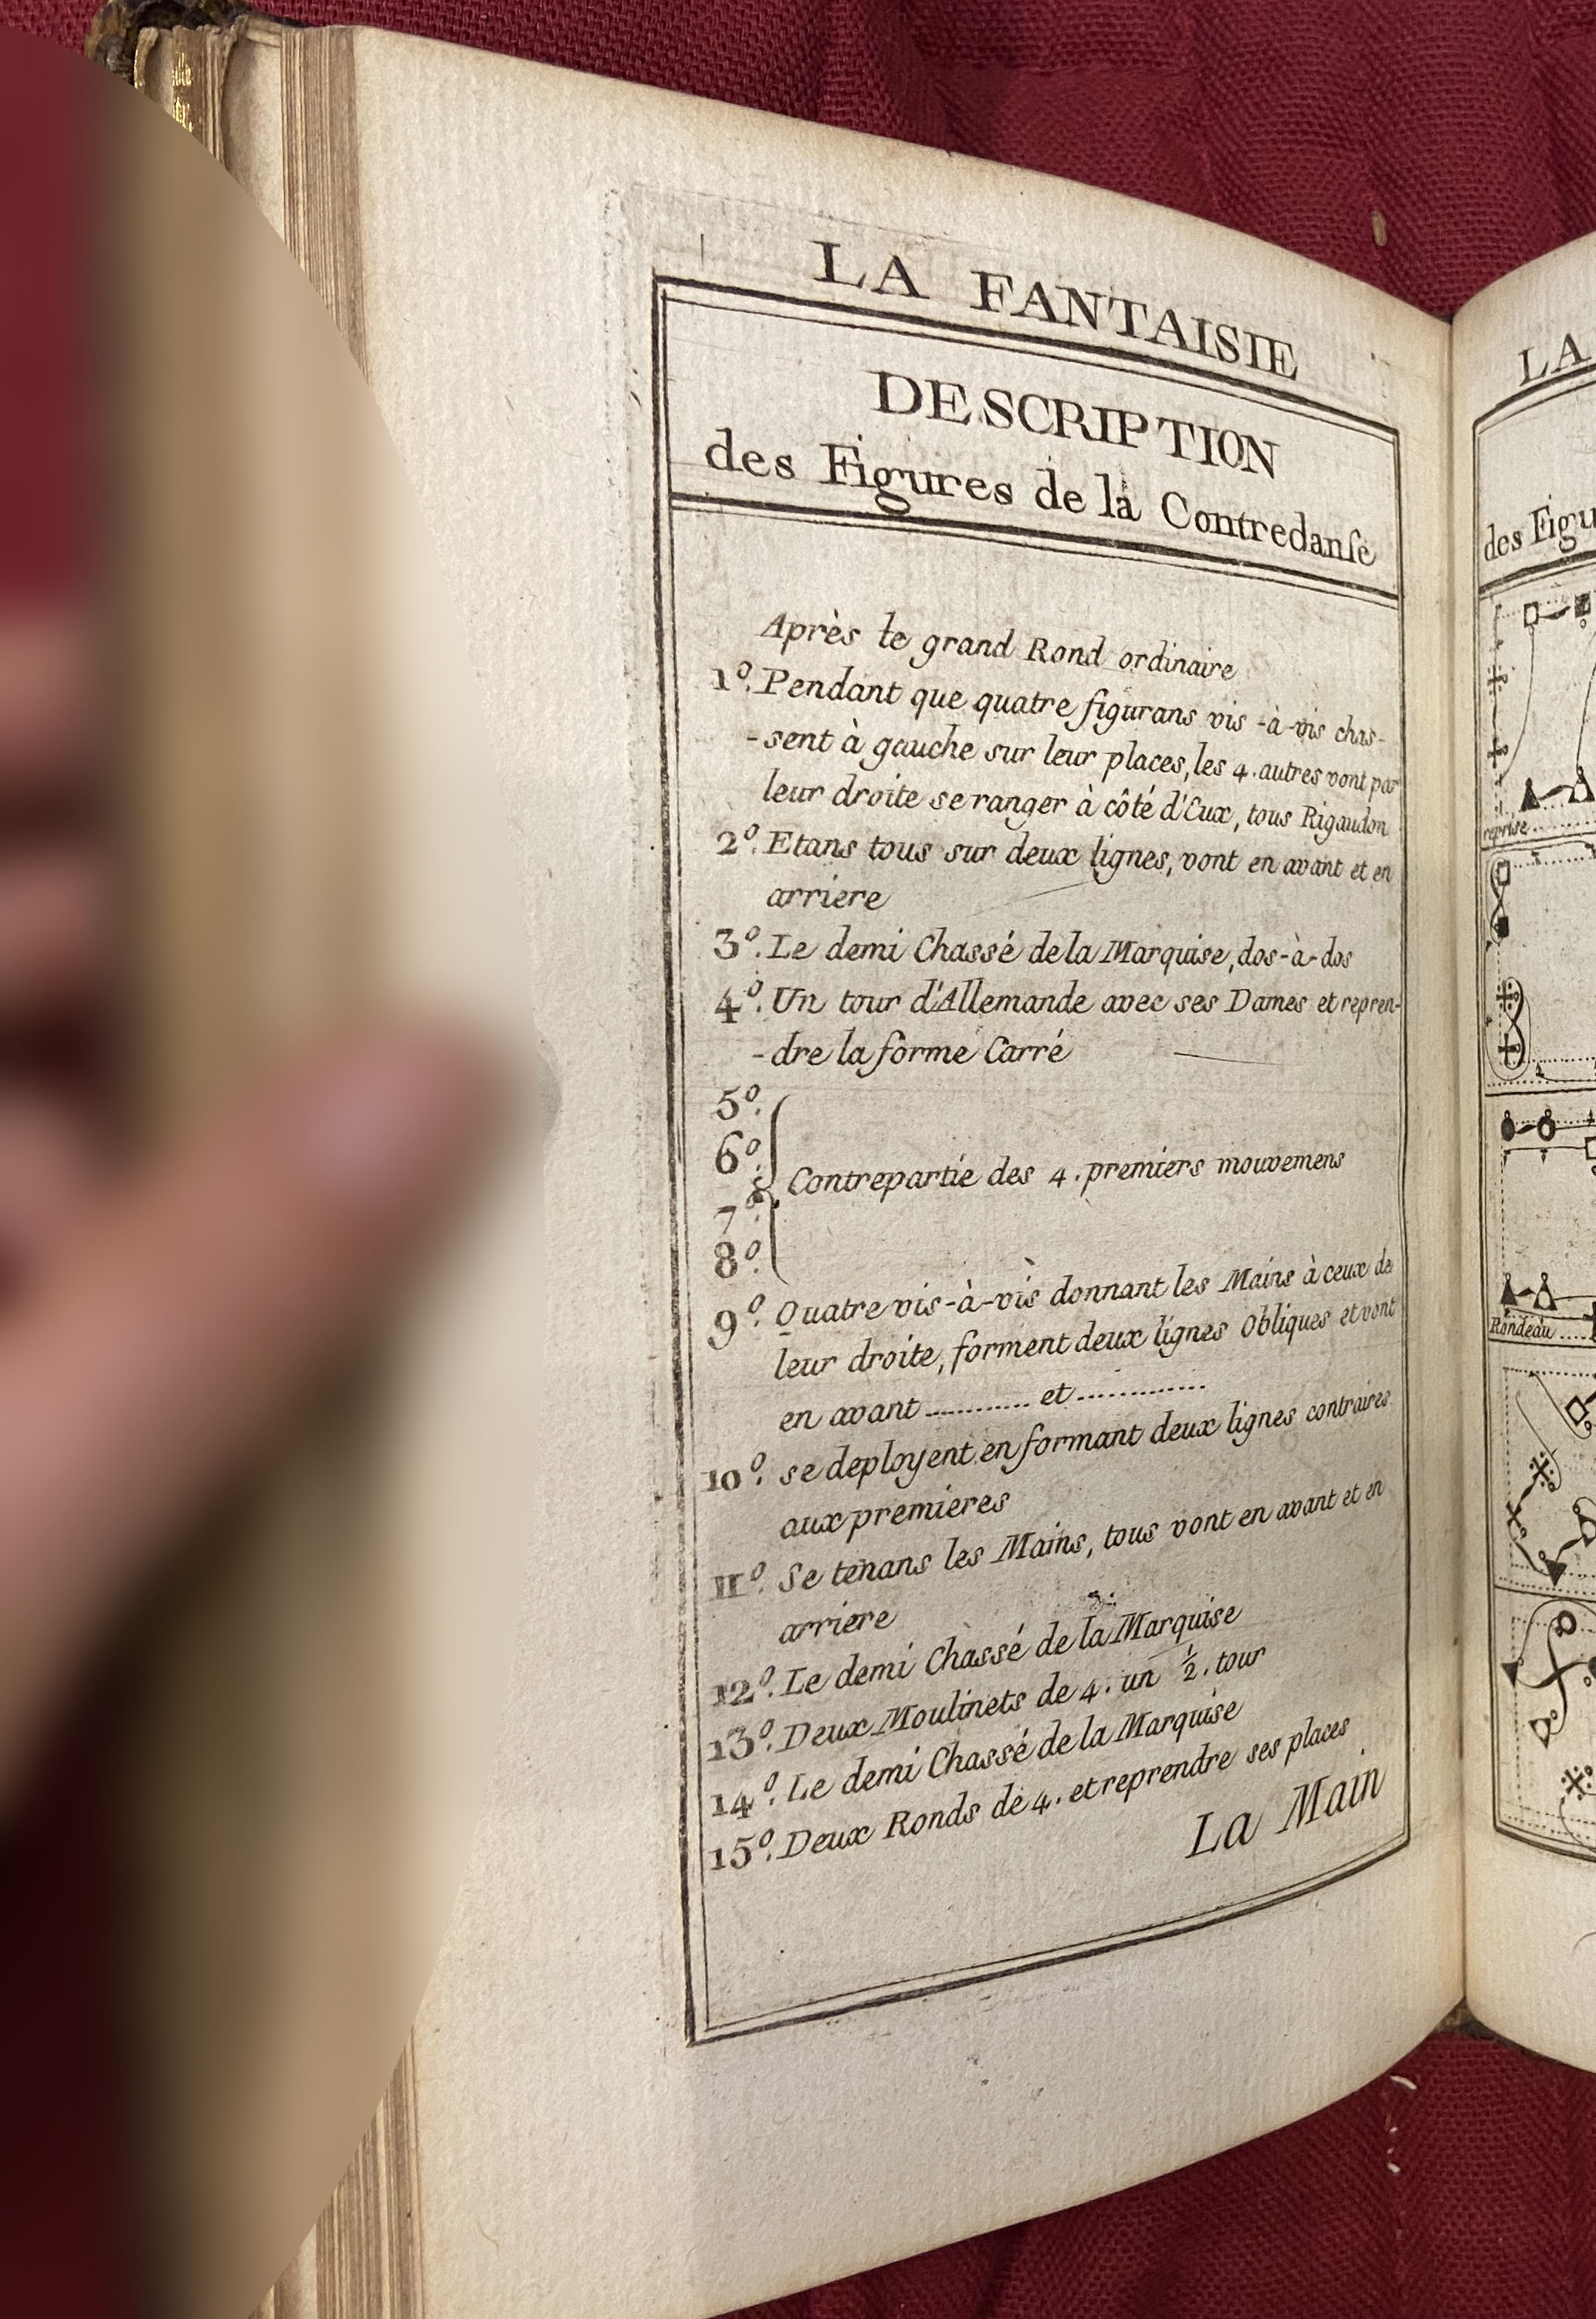 LA FANTAISIE
DESCRIPTION
des Figures de la Contredanſe
Après le grand Rond ordinaire
1º. Pendant que quatre figurans vis-à-vis chas-
-sent à gauche sur leur places, les 4. autres vont par
leur droite se ranger à côté d'Eux, tous Rigaudon
2º. Etans tous sur deux lignes, vont en avant et en
arriere
3º. Le demi Chassé de la Marquise, dos-à-dos
4º. Un tour d'Allemande avec ses Dames et repren-
-dre la forme Carré
5º.
6º.
Contrepartie des 4. premiers mouvemens
7º.
8º.
9º. Quatre vis-à-vis donnant les Mains à ceux de
leur droite, forment deux lignes Obliques et vont
en avant ........... et .............
10º. se deployent en formant deux lignes contraires
aux premieres
11º. Se tenans les Mains, tous vont en avant et en
arriere
12º. Le demi Chassé de la Marquise
13º. Deux Moulinets de 4. un ½. tour
14º. Le demi Chassé de la Marquise
15º. Deux Ronds de 4. et reprendre ses places
La Main
LA
des Figu
reprise
Rondeau